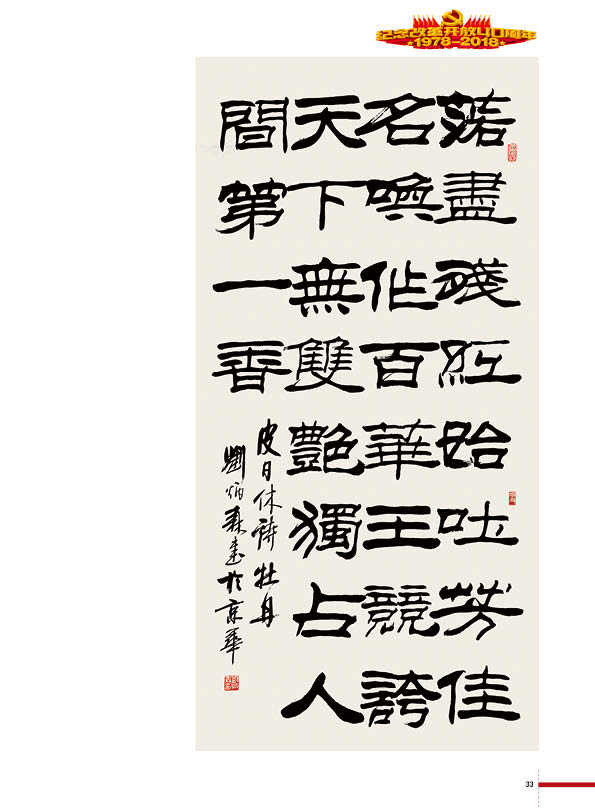 纪念改革开放40周年
1978-2018
落盡殘紅始吐芳佳
名喚作百華王競誇
天下無雙艷獨占人
間第一香
皮日休詩牡丹
劉炳森書於京華
33